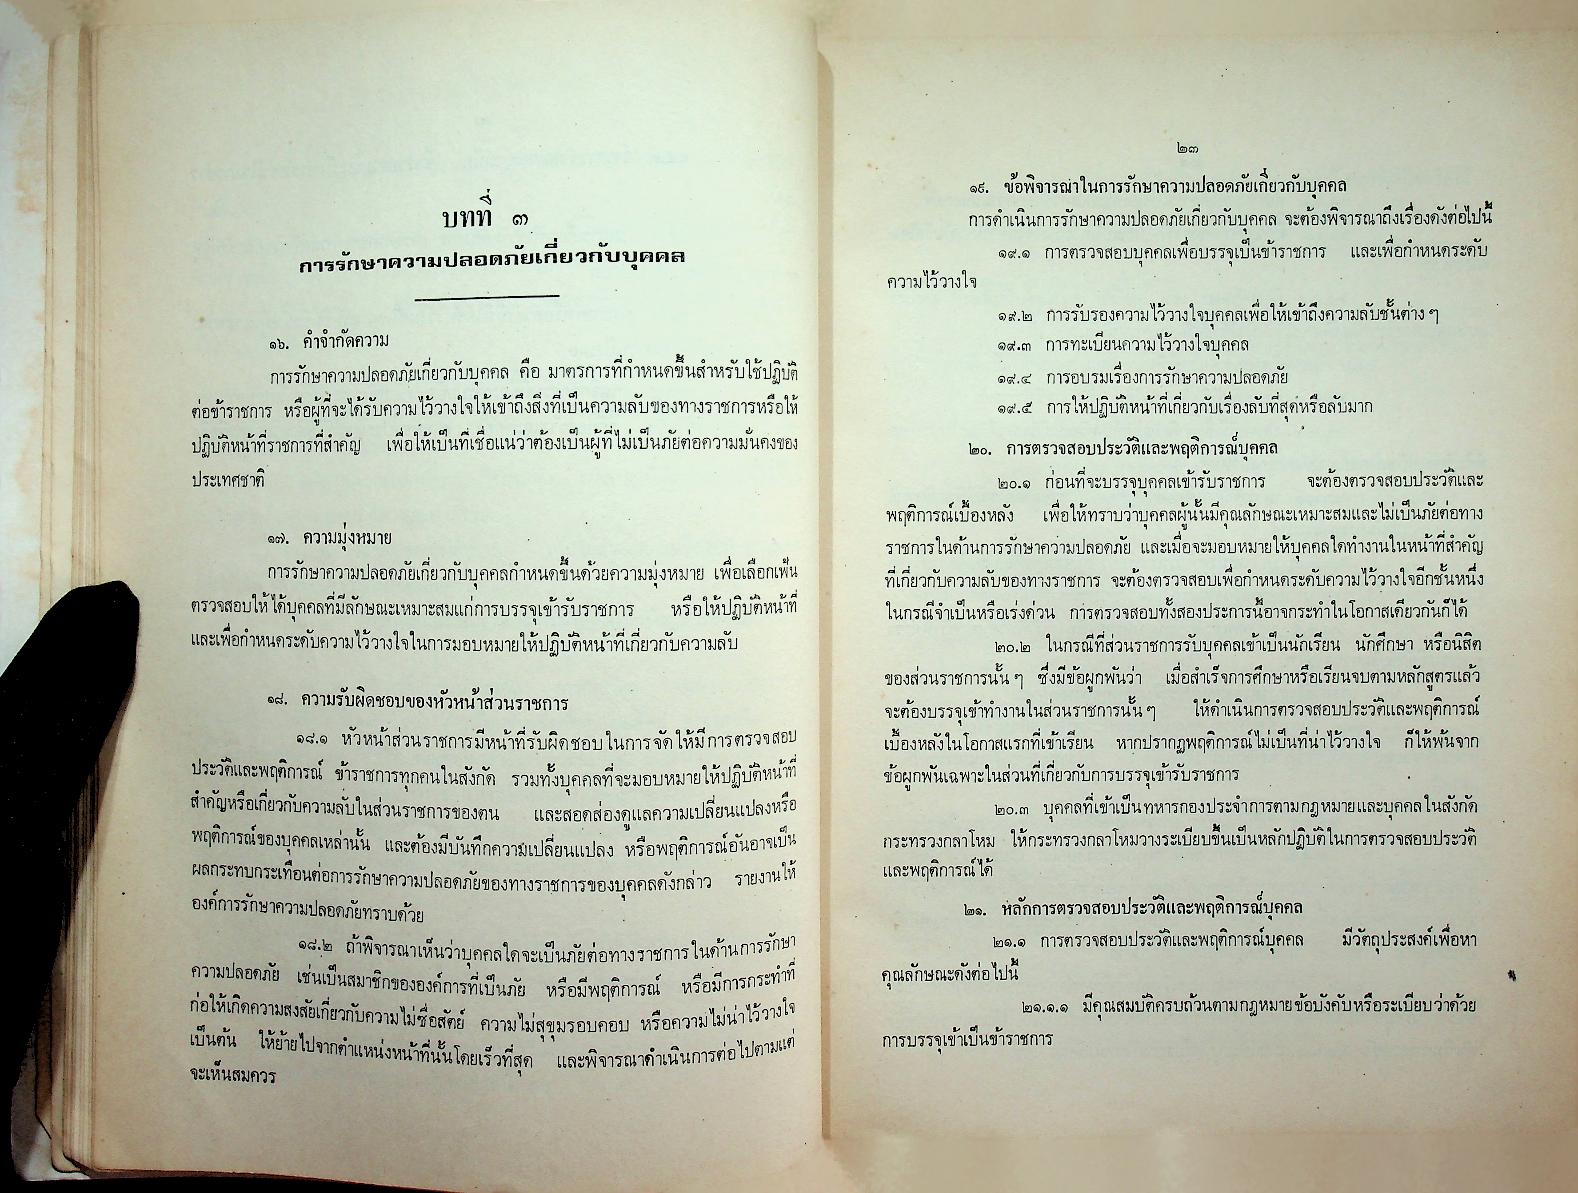 บทที่ ๓
การรักษาความปลอดภัยเกี่ยวกับบุคคล
๑๖. คำจำกัดความ
การรักษาความปลอดภัยเกี่ยวกับบุคคล คือ มาตรการที่กำหนดขึ้นสำหรับใช้ปฏิบัติ
ต่อข้าราชการ หรือผู้ที่จะได้รับความไว้วางใจให้เข้าถึงสิ่งที่เป็นความลับของทางราชการหรือให้
ปฏิบัติหน้าที่ราชการที่สำคัญ เพื่อให้เป็นที่เชื่อแน่ว่าต้องเป็นผู้ที่ไม่เป็นภัยต่อความมั่นคงของ
ประเทศชาติ
๑๗. ความมุ่งหมาย
การรักษาความปลอดภัยเกี่ยวกับบุคคลกำหนดขึ้นด้วยความมุ่งหมาย เพื่อเลือกเฟ้น
ตรวจสอบให้ได้บุคคลที่มีลักษณะเหมาะสมแก่การบรรจุเข้ารับราชการ หรือให้ปฏิบัติหน้าที่
และเพื่อกำหนดระดับความไว้วางใจในการมอบหมายให้ปฏิบัติหน้าที่เกี่ยวกับความลับ
๑๘. ความรับผิดชอบของหัวหน้าส่วนราชการ
๑๘.๑ หัวหน้าส่วนราชการมีหน้าที่รับผิดชอบในการจัดให้มีการตรวจสอบ
ประวัติและพฤติการณ์ ข้าราชการทุกคนในสังกัด รวมทั้งบุคคลที่จะมอบหมายให้ปฏิบัติหน้าที่
สำคัญหรือเกี่ยวกับความลับในส่วนราชการของตน และสอดส่องดูแลความเปลี่ยนแปลงหรือ
พฤติการณ์ของบุคคลเหล่านั้น และต้องมีบันทึกความเปลี่ยนแปลง หรือพฤติการณ์อันอาจเป็น
ผลกระทบกระเทือนต่อการรักษาความปลอดภัยของทางราชการของบุคคลดังกล่าว รายงานให้
องค์การรักษาความปลอดภัยทราบด้วย
๑๘.๒ ถ้าพิจารณาเห็นว่าบุคคลใดจะเป็นภัยต่อทางราชการในด้านการรักษา
ความปลอดภัย เช่นเป็นสมาชิกขององค์การที่เป็นภัย หรือมีพฤติการณ์ หรือมีการกระทำที่
ก่อให้เกิดความสงสัยเกี่ยวกับความไม่ซื่อสัตย์ ความไม่สุขุมรอบคอบ หรือความไม่น่าไว้วางใจ
เป็นต้น ให้ย้ายไปจากตำแหน่งหน้าที่นั้นโดยเร็วที่สุด และพิจารณาดำเนินการต่อไปตามแต่
จะเห็นสมควร
๒๓
๑๙. ข้อพิจารณาในการรักษาความปลอดภัยเกี่ยวกับบุคคล
การดำเนินการรักษาความปลอดภัยเกี่ยวกับบุคคล จะต้องพิจารณาถึงเรื่องดังต่อไปนี้
๑๙.๑ การตรวจสอบบุคคลเพื่อบรรจุเป็นข้าราชการ และเพื่อกำหนดระดับ
ความไว้วางใจ
๑๙.๒ การรับรองความไว้วางใจบุคคลเพื่อให้เข้าถึงความลับชั้นต่าง ๆ
๑๙.๓ การทะเบียนความไว้วางใจบุคคล
๑๙.๔ การอบรมเรื่องการรักษาความปลอดภัย
๑๙.๕ การให้ปฏิบัติหน้าที่เกี่ยวกับเรื่องลับที่สุดหรือลับมาก
๒๐. การตรวจสอบประวัติและพฤติการณ์บุคคล
๒๐.๑ ก่อนที่จะบรรจุบุคคลเข้ารับราชการ จะต้องตรวจสอบประวัติและ
พฤติการณ์เบื้องหลัง เพื่อให้ทราบว่าบุคคลผู้นั้นมีคุณลักษณะเหมาะสมและไม่เป็นภัยต่อทาง
ราชการในด้านการรักษาความปลอดภัย และเมื่อจะมอบหมายให้บุคคลใดทำงานในหน้าที่สำคัญ
ที่เกี่ยวกับความลับของทางราชการ จะต้องตรวจสอบเพื่อกำหนดระดับความไว้วางใจอีกชั้นหนึ่ง
ในกรณีจำเป็นหรือเร่งด่วน การตรวจสอบทั้งสองประการนี้อาจกระทำในโอกาสเดียวกันก็ได้
๒๐.๒ ในกรณีที่ส่วนราชการรับบุคคลเข้าเป็นนักเรียน นักศึกษา หรือนิสิต
ของส่วนราชการนั้น ๆ ซึ่งมีข้อผูกพันว่า เมื่อสำเร็จการศึกษาหรือเรียนจบตามหลักสูตรแล้ว
จะต้องบรรจุเข้าทำงานในส่วนราชการนั้น ๆ ให้ดำเนินการตรวจสอบประวัติและพฤติการณ์
เบื้องหลังในโอกาสแรกที่เข้าเรียน หากปรากฏพฤติการณ์ไม่เป็นที่น่าไว้วางใจ ก็ให้พ้นจาก
ข้อผูกพันเฉพาะในส่วนที่เกี่ยวกับการบรรจุเข้ารับราชการ
๒๐.๓ บุคคลที่เข้าเป็นทหารกองประจำการตามกฎหมายและบุคคลในสังกัด
กระทรวงกลาโหม ให้กระทรวงกลาโหมวางระเบียบขึ้นเป็นหลักปฏิบัติในการตรวจสอบประวัติ
และพฤติการณ์ได้
๒๑. หลักการตรวจสอบประวัติและพฤติการณ์บุคคล
๒๑.๑ การตรวจสอบประวัติและพฤติการณ์บุคคล มีวัตถุประสงค์เพื่อหา
คุณลักษณะดังต่อไปนี้
๒๑.๑.๑ มีคุณสมบัติครบถ้วนตามกฎหมายข้อบังคับหรือระเบียบว่าด้วย
การบรรจุเข้าเป็นข้าราชการ